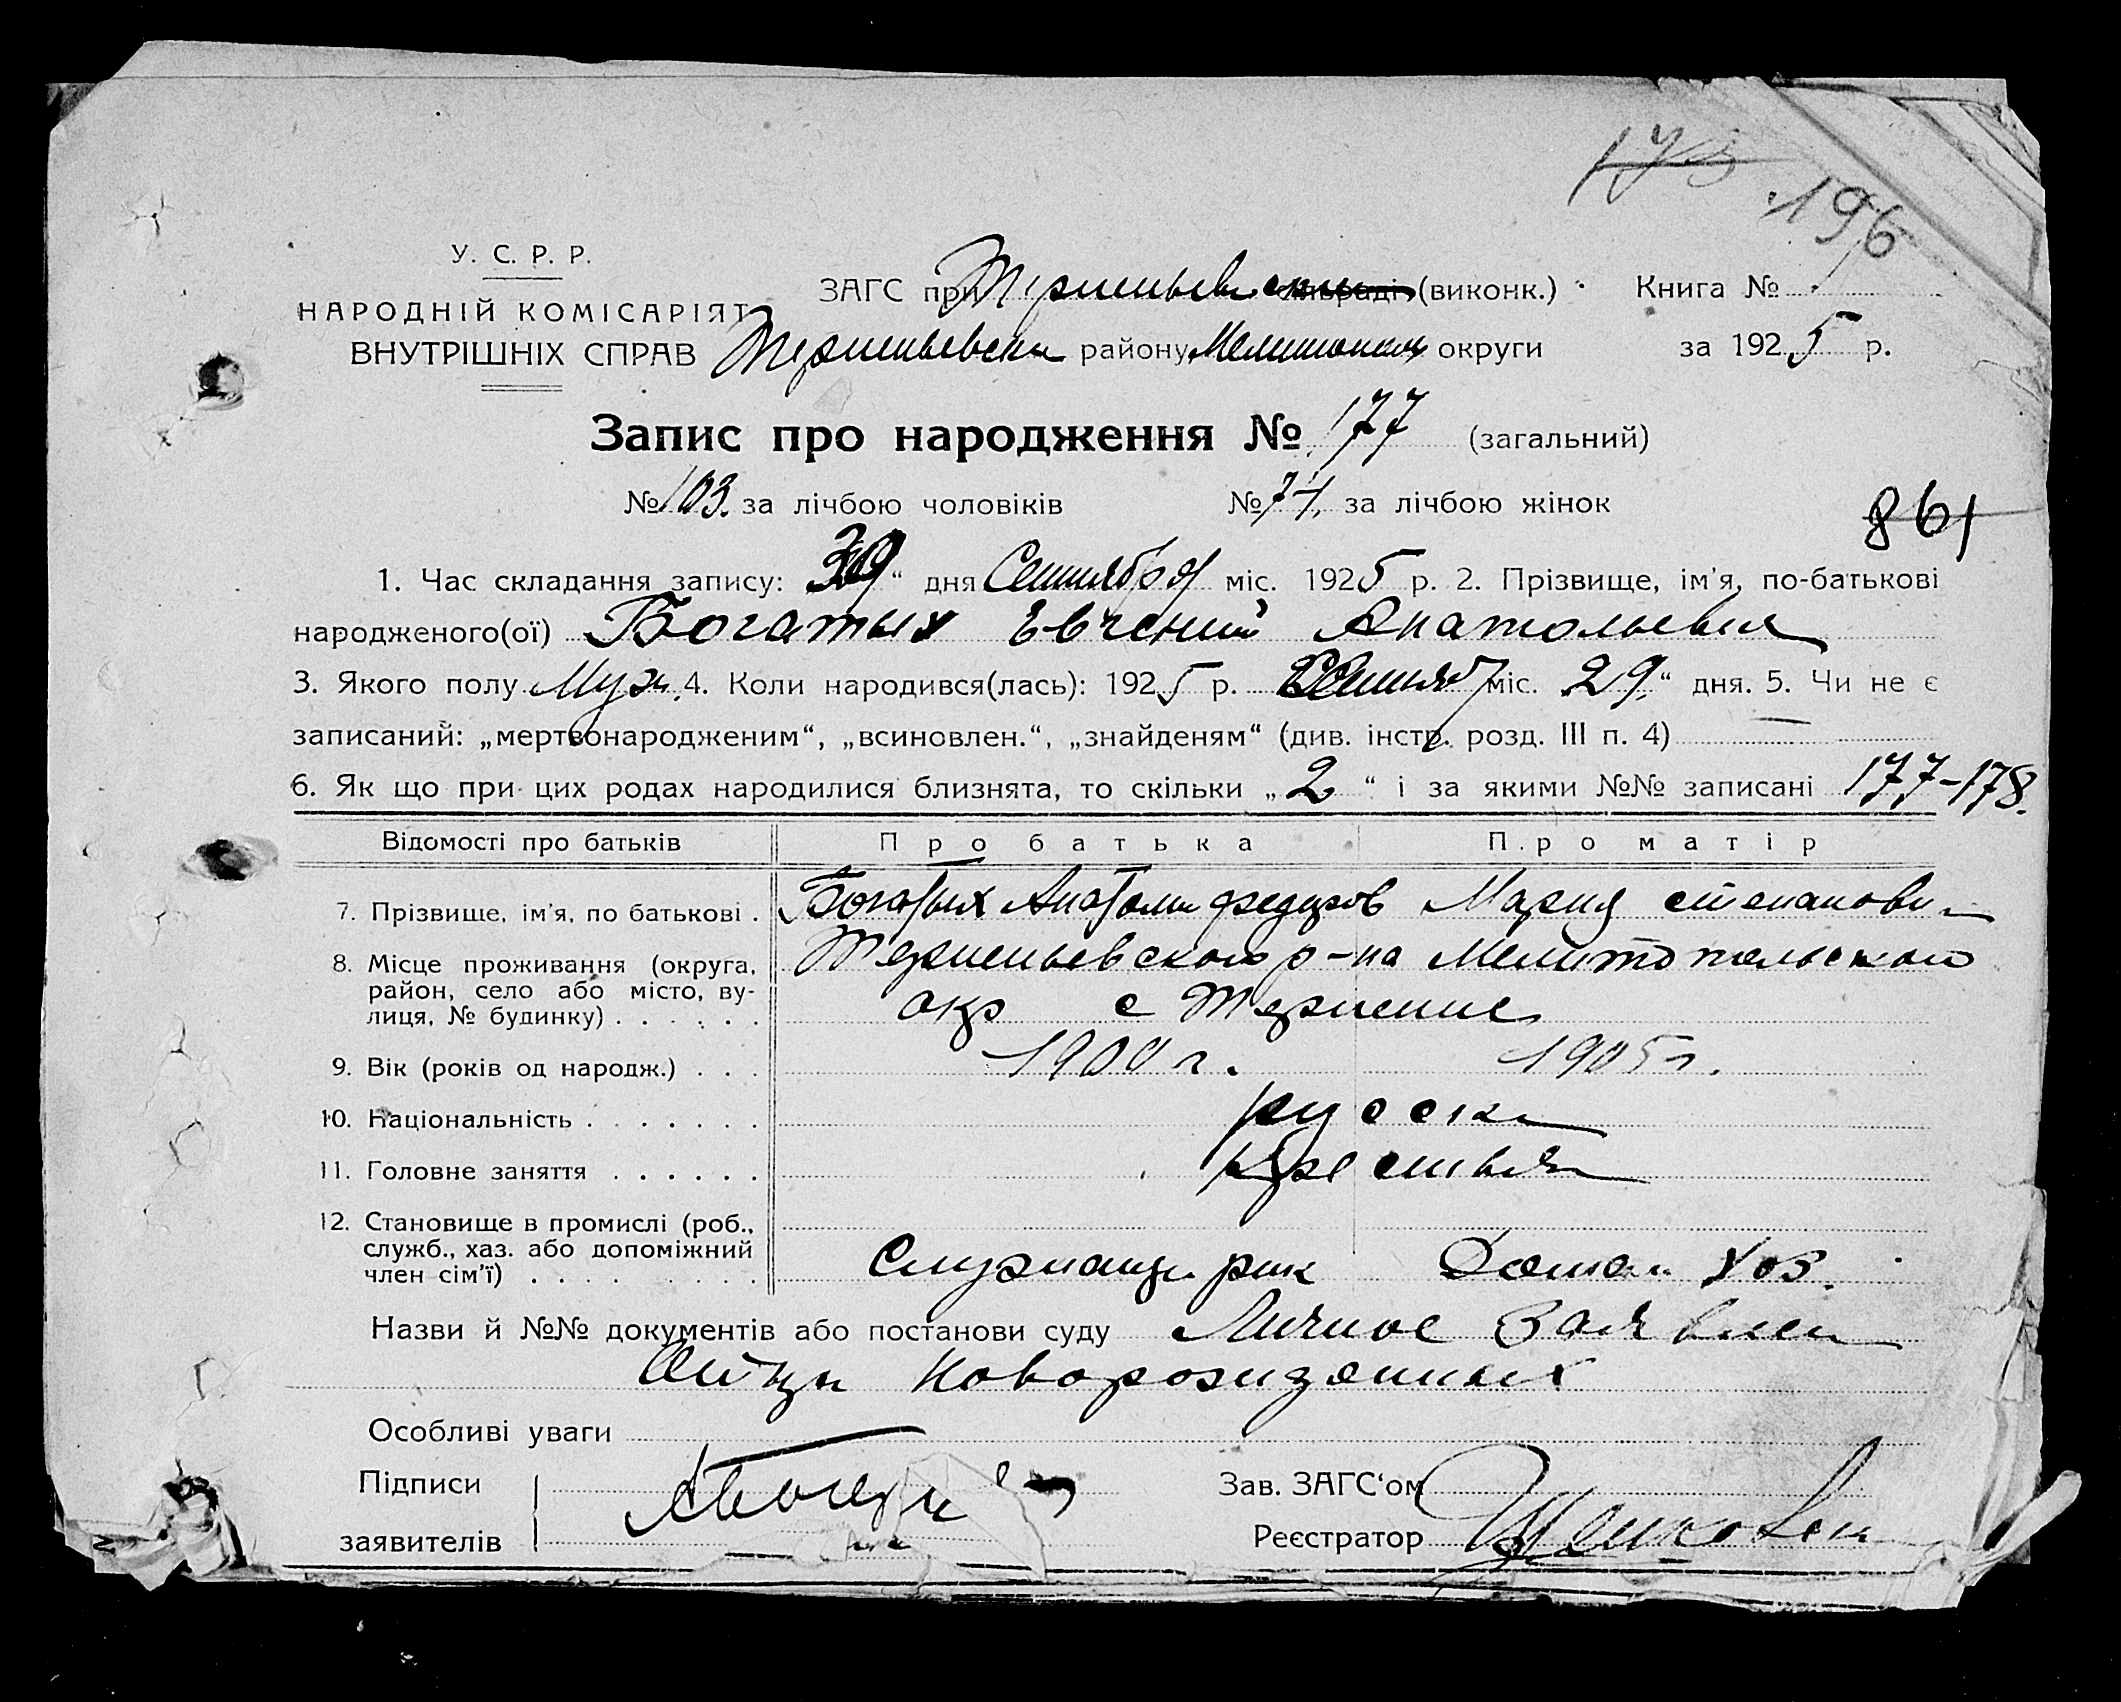 173
196
У. С. Р. Р.
НАРОДНІЙ КОМІСАРІЯТ
ВНУТРІШНІХ СПРАВ
ЗАГС при Терпеньевском сільраді (виконк.) Книга №
Терпеньевск району Мелитопольск округи за 1925 р.
Запис про народження № 177 (загальний)
№ 103. за лічбою чоловіків № 74, за лічбою жінок
861
1. Час складання запису: „ “ дня Сентября міс. 1925 р. 2. Прізвище, ім'я, по-батькові
народженого(ої) Богатых Евгений Анатольевич
3. Якого полу Муж. 4. Коли народився(лась): 1925 р. Сентяб міс. 29 “ дня. 5. Чи не є
записаний: „мертвонародженим“, „всиновлен.“, „знайденям“ (див. інстр. розд. III п. 4) —
6. Як що при цих родах народилися близнята, то скільки „ 2 “ і за якими №№ записані 177-178.
Відомості про батьків Про батька Про матір
7. Прізвище, ім'я, по батькові . Богатых Анатоли Федоров Мария Степанови
8. Місце проживання (округа, район, село або місто, вулиця, № будинку) . . . . . . Терпеньевского р-на Мелитопольского
окр с Терпение
9. Вік (років од народж.) . . . 1900 г. 1905 г.
10. Національність . . . . . . . русски
11. Головне заняття . . . . . . крестьян
12. Становище в промислі (роб., служб., хаз. або допоміжний член сім'ї) . . . . . . . . . Служащи рик Домаш Хоз.
Назви й №№ документів або постанови суду Личное Заявлен
Отца Новорожденных
Особливі уваги
Підписи
заявителів
Зав. ЗАГС‘ом
Реєстратор